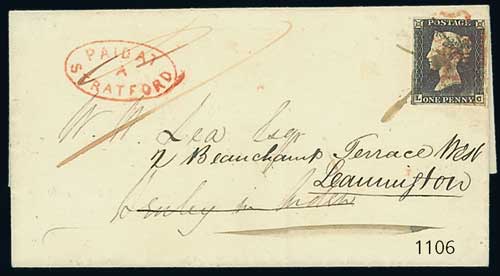 PAID AT
A
STRATFORD
POSTAGE
ONE PENNY
W. W. Lea Esqr
7 Beauchamp Terrace West
Leamington
Henley in
1106